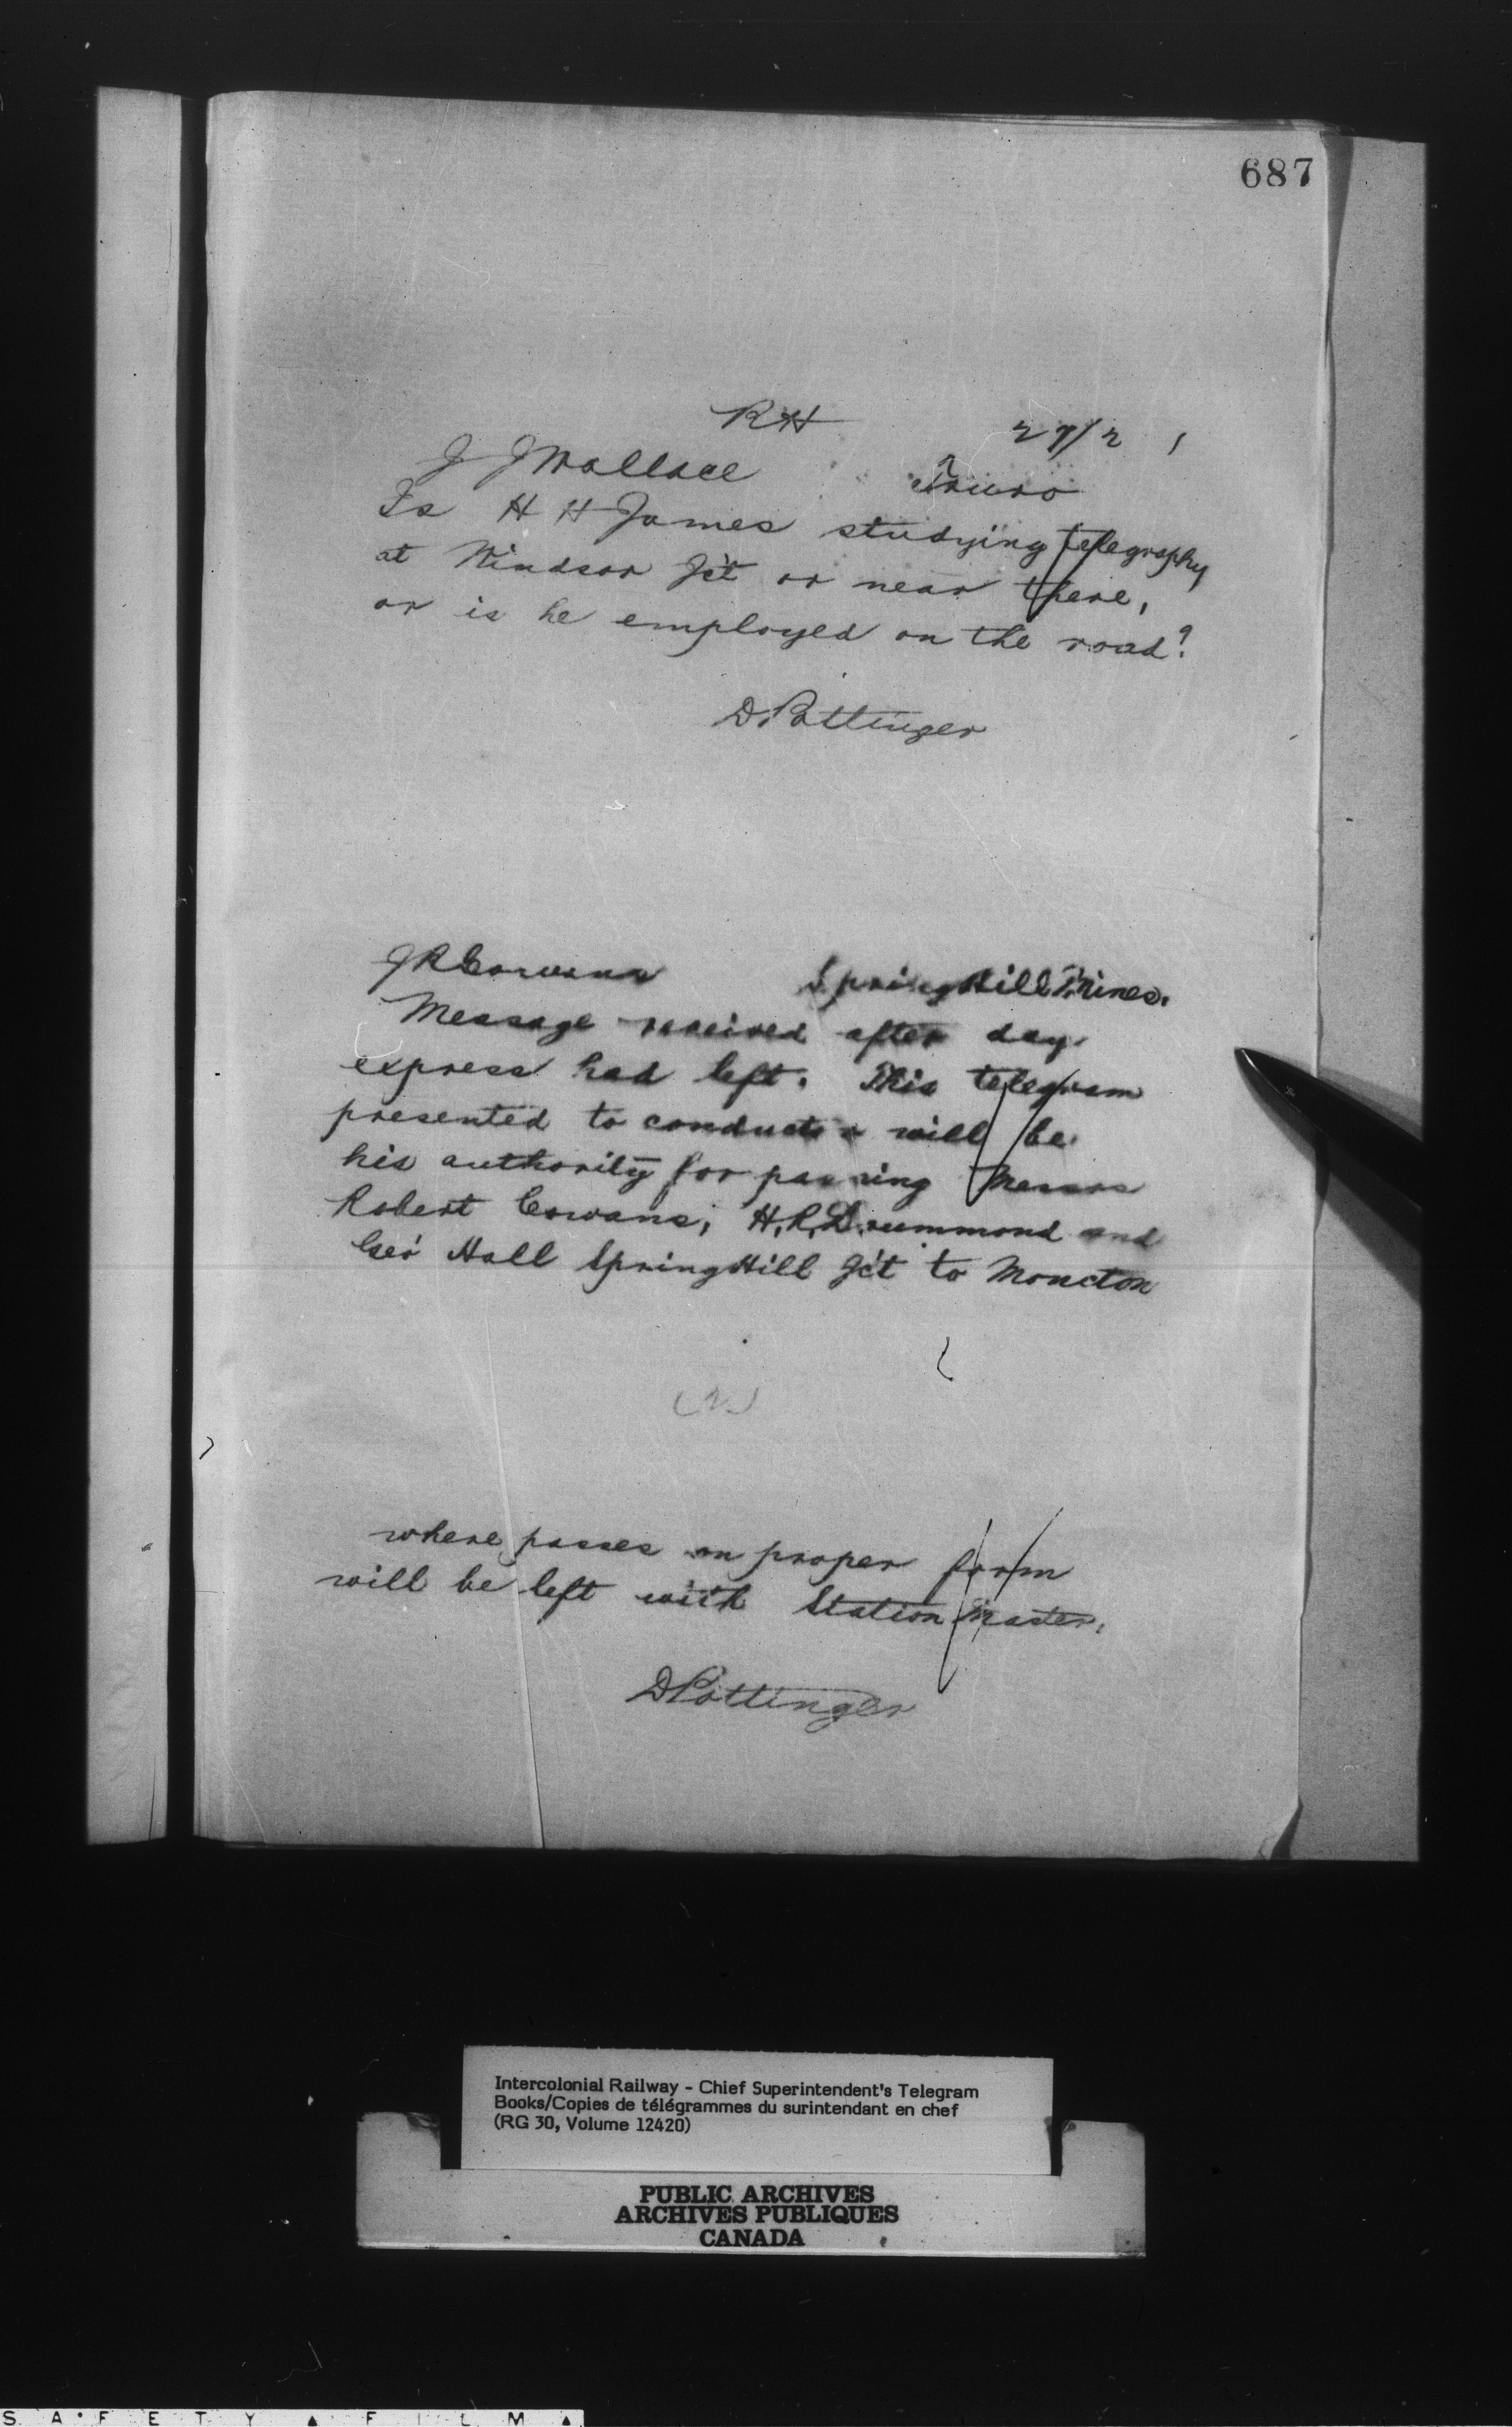 687
RH 27/2
J J Wallace Truro
Is H H James studying telegraphy
at Windsor Jct or near there,
or is he employed on the road?
D. Pottinger
J R Cowans Spring Hill Mines.
Message received after day
express had left. This telegram
presented to conductor will be
his authority for passing Messrs
Robert Cowans, H. R. Drummond and
Geo Hall Spring Hill Jct to Moncton
where passes on proper form
will be left with Station Master.
D Pottinger
Intercolonial Railway - Chief Superintendent's Telegram
Books/Copies de télégrammes du surintendant en chef
(RG 30, Volume 12420)
PUBLIC ARCHIVES
ARCHIVES PUBLIQUES
CANADA
SAFETY ▲ FILM ▲